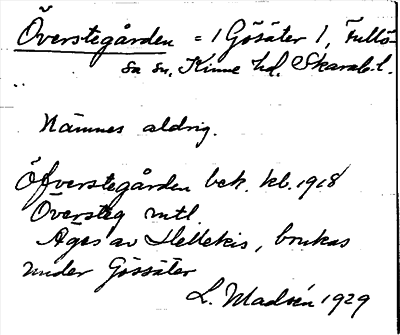 Överstegården = 1 Gössäter 1, Fullö-
sa sn, Kinne hd. Skarab. l.
Nämnes aldrig.
Öfverstegården bek. kb. 1918
Översteg mtl.
Äges av Hellekis, brukas
under Gössäter
L. Madsén 1929